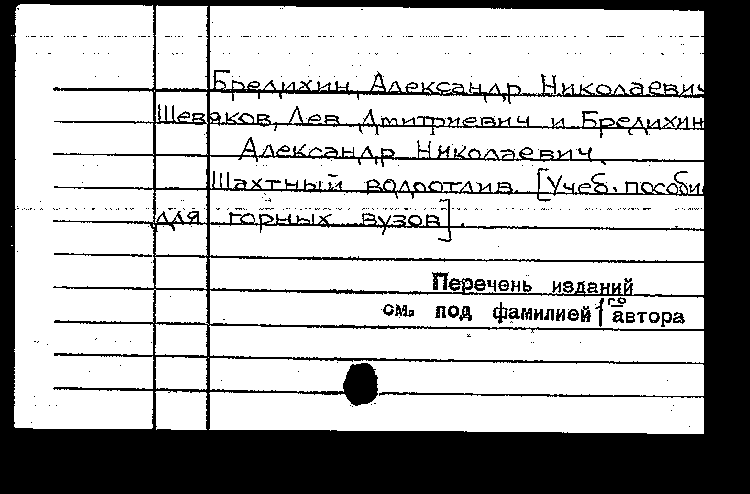 Бредихин, Александр Николаевич
Шевяков, Лев Дмитриевич и Бредихин
Александр Николаевич.
Шахтный водоотлив. [Учеб. пособие
для горных вузов].
Перечень изданий
см. под фамилией 1го автора